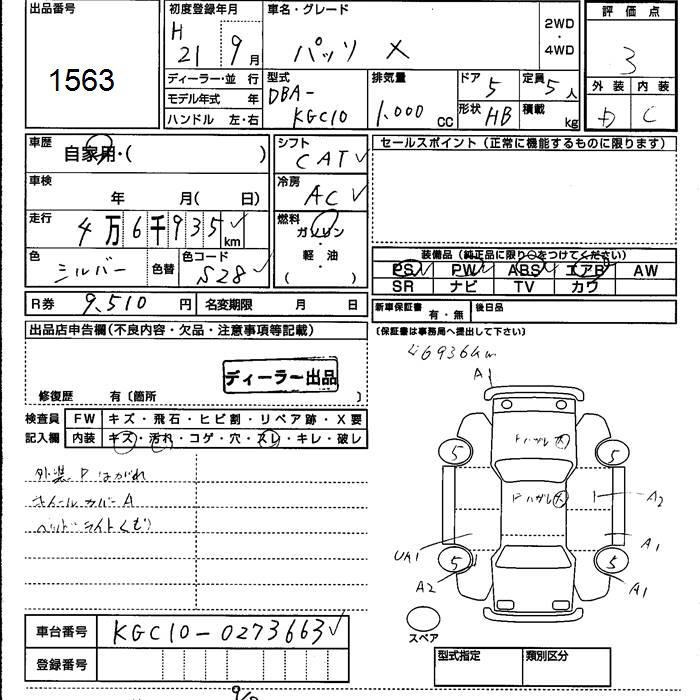 出品番号
1563
初度登録年月
H 21 9月
車名・グレード
パッソ X
2WD
・
4WD
評価点
3
外装 内装
D C
ディーラー・並 行
モデル年式 年
ハンドル 左・右
型式
DBA-
KGC10
排気量
1.000 cc
ドア 5
形状 HB
定員 5人
積載 kg
車歴
自家用・( )
車検
年 月( 日)
走行
4万6千935km
色
シルバー
色替
色コード
S28
シフト
CAT
冷房
AC
燃料
ガソリン
・
軽・油
( )
セールスポイント(正常に機能するものに限ります)
装備品(純正品に限り○をつけてください)
PS PW ABS エアB AW
SR ナビ TV カワ
R券 9,510 円 名変期限 月 日
新車保証書 有・無 後日品
(保証書は事務局へ提出して下さい)
出品店申告欄(不良内容・欠品・注意事項等記載)
ディーラー出品
修復歴 有〔箇所 〕
46936km
検査員
記入欄
FW キズ・飛石・ヒビ割・リペア跡・X要
内装 キズ・汚れ・コゲ・穴・スレ・キレ・破レ
外装 P はがれ
ホイールカバーA
ヘッドライトくもり
A1
Pハガレ大
5 5
Pハガレ大
A2
UA1 A1
5 5
A2 A1
スペア
車台番号 KGC10-0273663
登録番号
型式指定 類別区分